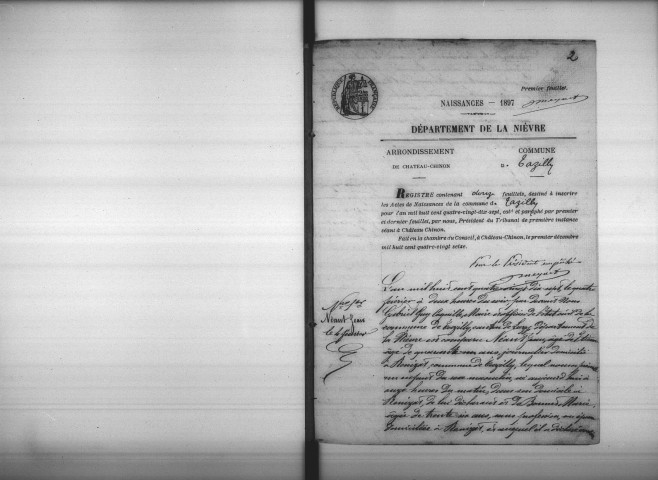 2
Premier feuillet.
RÉPUBLIQUE FRANÇAISE
NAISSANCES — 1897
DÉPARTEMENT DE LA NIÈVRE
ARRONDISSEMENT
DE CHATEAU-CHINON
COMMUNE
de Tazilly
REGISTRE contenant onze feuillets, destiné à inscrire
les Actes de Naissances de la commune de Tazilly
pour l'an mil huit cent quatre-vingt-dix sept, coté et paraphé par premier
et dernier feuillet, par nous, Président du Tribunal de première instance
séant à Château-Chinon.
Fait en la chambre du Conseil, à Château-Chinon, le premier décembre
mil huit cent quatre-vingt seize.
Pour le Président empêché
L'an mil huit cent quatre vingt dix sept, le quatre
février à deux heures du soir, par devant Nous
Maire officier de l'état civil de la
commune de Tazilly, canton de Luzy, Département de
la Nièvre est comparu Néant Jean
âgé de quarante un ans, journalier domicilié
à commune de Tazilly, lequel nous a présenté
un enfant du sexe masculin, né aujourd'hui à
onze heures du matin, dans son domicile à
de lui déclarant et de Marie
âgée de trente six ans, sans profession, son épouse
domiciliée à auquel il a déclaré
Néant Jean